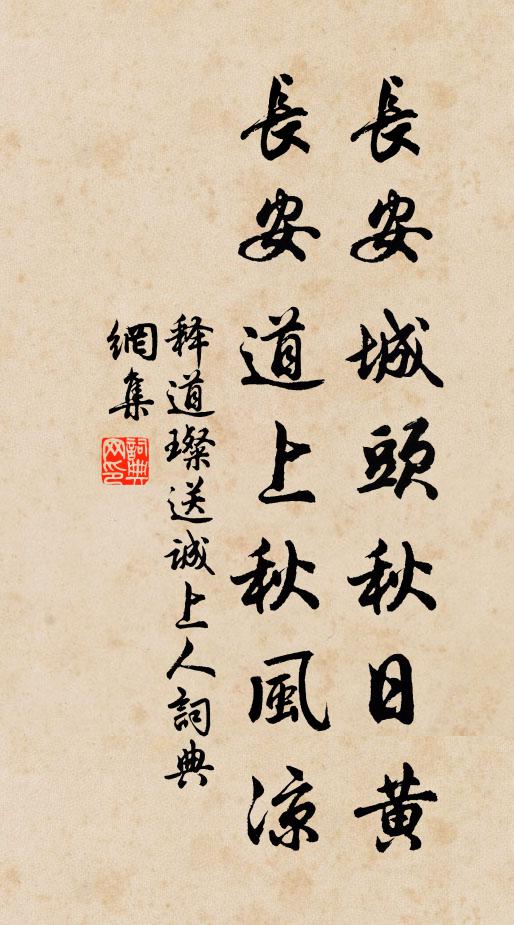 長安城頭秋日黄
長安道上秋風涼
释道璨送誠上人詞典
網集
詞典
网印